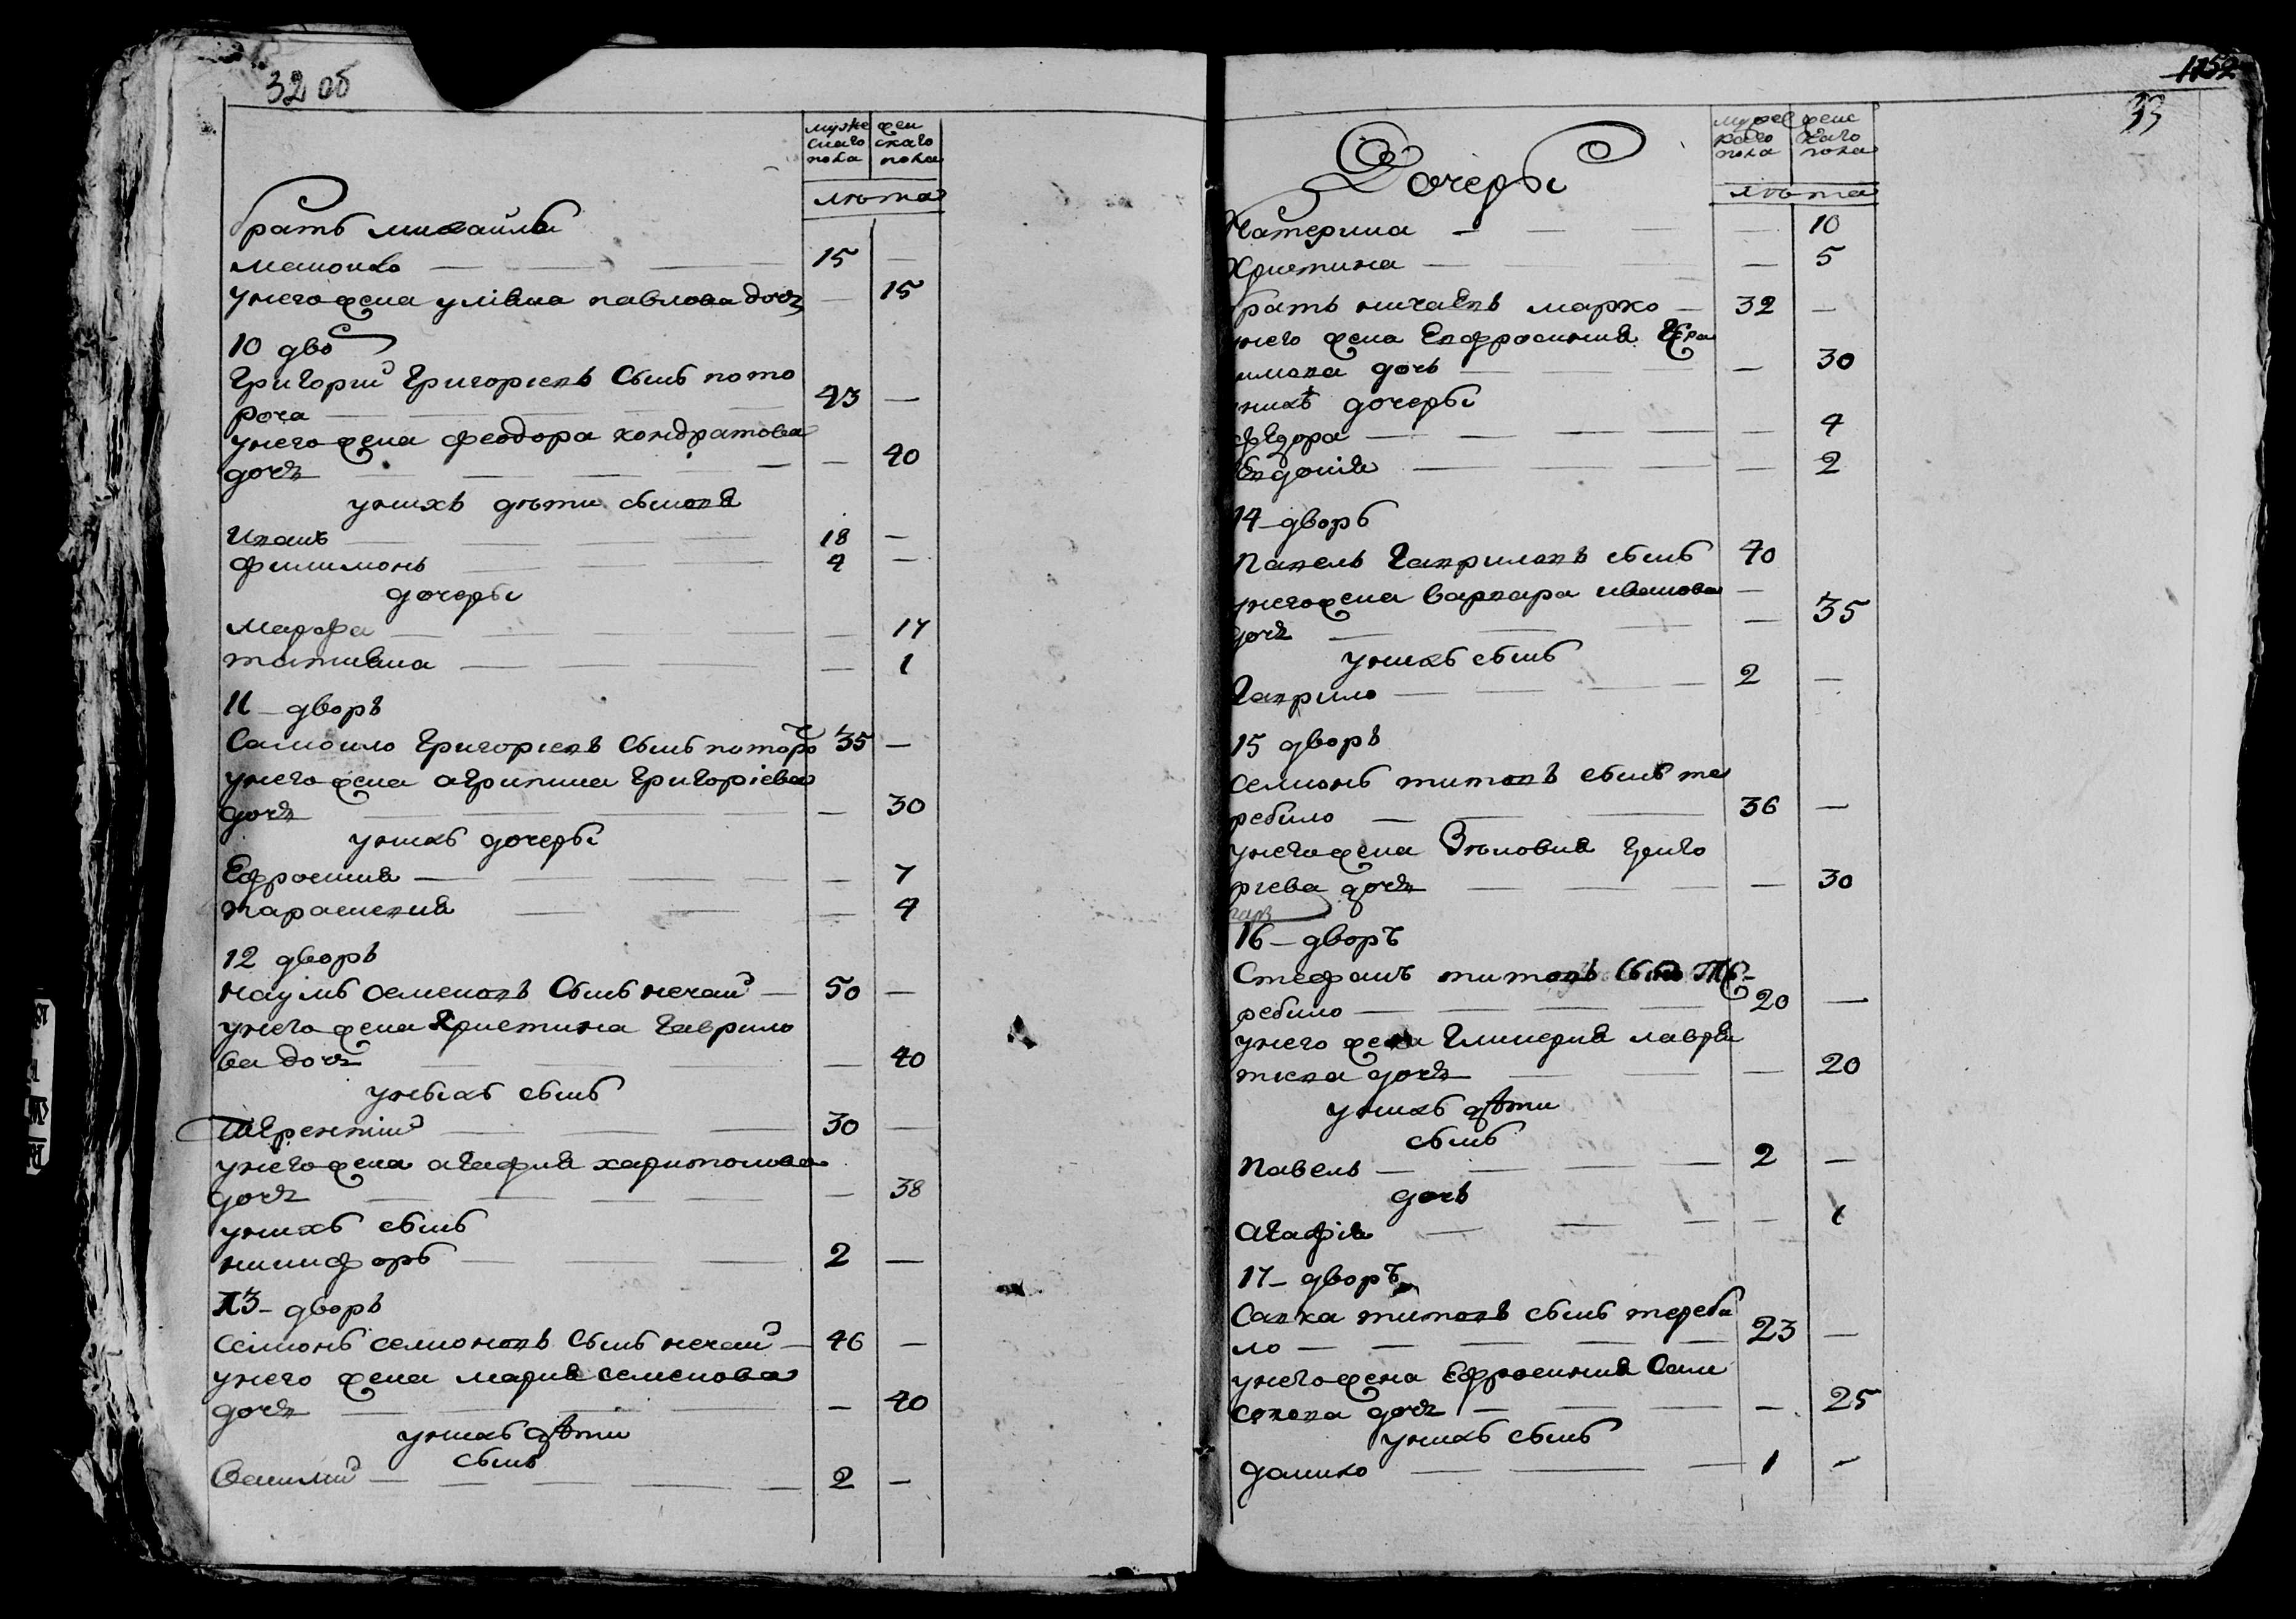 32 об
муже
скаго
пола
жен
скаго
пола
лѣта
братъ михаилъ
манойло — 15 —
у него жена улияна павлова дочь — 15
10 дво
Григорий Григориевъ сынъ пото
роча — 43 —
у него жена феодора кондратова
дочь — 40
у нихъ дѣти сыновя
Иванъ — 18 —
филимонъ — 4 —
дочеры
Марфа — 17
татияна — 1
11 – дворъ
Самойло Григориевъ сынъ поторо 35 —
у него жена агрипина Григоріева
дочь — 30
у нихъ дочеры
Ефросиния — 7
параскевия — 4
12 дворъ
Наумъ семеновъ сынъ нечай — 50 —
у него жена Христина Гаврило
ва дочь — 40
у ныхъ сынъ
Терентий — 30 —
у него жена агафия харитонова
дочь — 38
у нихъ сынъ
никифоръ — 2 —
13 – дворъ
семионъ семионовъ сынъ нечай — 46 —
у него жена мария семенова
дочь — 40
у нихъ дѣти
сынъ
Василий — 2 —
1152
33
мужес
каго
пола
женс
каго
пола
лѣта
Дочеры
Катерина — 10
Христина — 5
братъ ничаевъ марко — 32 —
у него жена Евфросиния Гера
имова дочь — 30
у нихъ дочеры
федора — 4
Евдокия — 2
14 – дворъ
Павелъ Гавриловъ сынъ 40
у него жена варвара иванова —
дочь — 35
у нихъ сынъ
Гаврило — 2 —
15 дворъ
семионъ титовъ сынъ те
ребило — 36 —
у него жена Зѣновия григо
риева дочь — 30
16 – дворъ
Стефанъ титовъ сынъ Те-
ребило — 20 —
у него жена Гликерия лаврѣ
тиева дочь — 20
у нихъ дѣти
сынъ
Павелъ — 2 —
дочь
агафія — 1
17 – дворъ
Савка титовъ сынъ тереби
ло — 23 —
у него жена Ефросиния сам
сонова дочь — 25
у нихъ сынъ
данило — 1 —